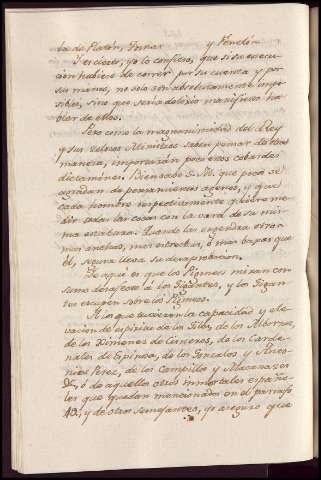 ta de Platón, Tomas y Fenelón.
Y es cierto, yo lo confieso, que si su execu-
cion hubiere de correr por su cuenta y por
sus manos, no solo son absolutamente impo-
sibles, sino que seria delirio manifiesto ha-
blar de ellos.
Pero como la magnanimidad del Rey
y sus zelosos Ministros saben pensar de otra
manera, importarán poco estos cobardes
dictamenes. Bien sabe S.M. que pocos se
agradan de pensamientos agenos, y que
cada hombre respectivamente quiere me-
dir todas las cosas con la vara de su mis-
ma estatura. Quando las engendra otro
mas anchas, mas estrechas, ó mas bajas que
él, segura lleva su desaprobacion.
De aqui es que los Pigmeos miran con
sumo desafecto á los Gigantes, y los Gigan-
tes escupen sobre los Pigmeos.
A los que tuvieren la capacidad y ele-
vacion de espiritu de los Giles, de los Albornoz,
de los Ximenes de Cisneros, de los Carde-
nales de Espinosa, de los Gonzalos y Anto-
nios Perez, de los Campillos y Macanazes
&, ó de aquellos otros inmortales españo-
les que quedan mencionados en el parrafo
43, y de otros semejantes, yo aseguro que